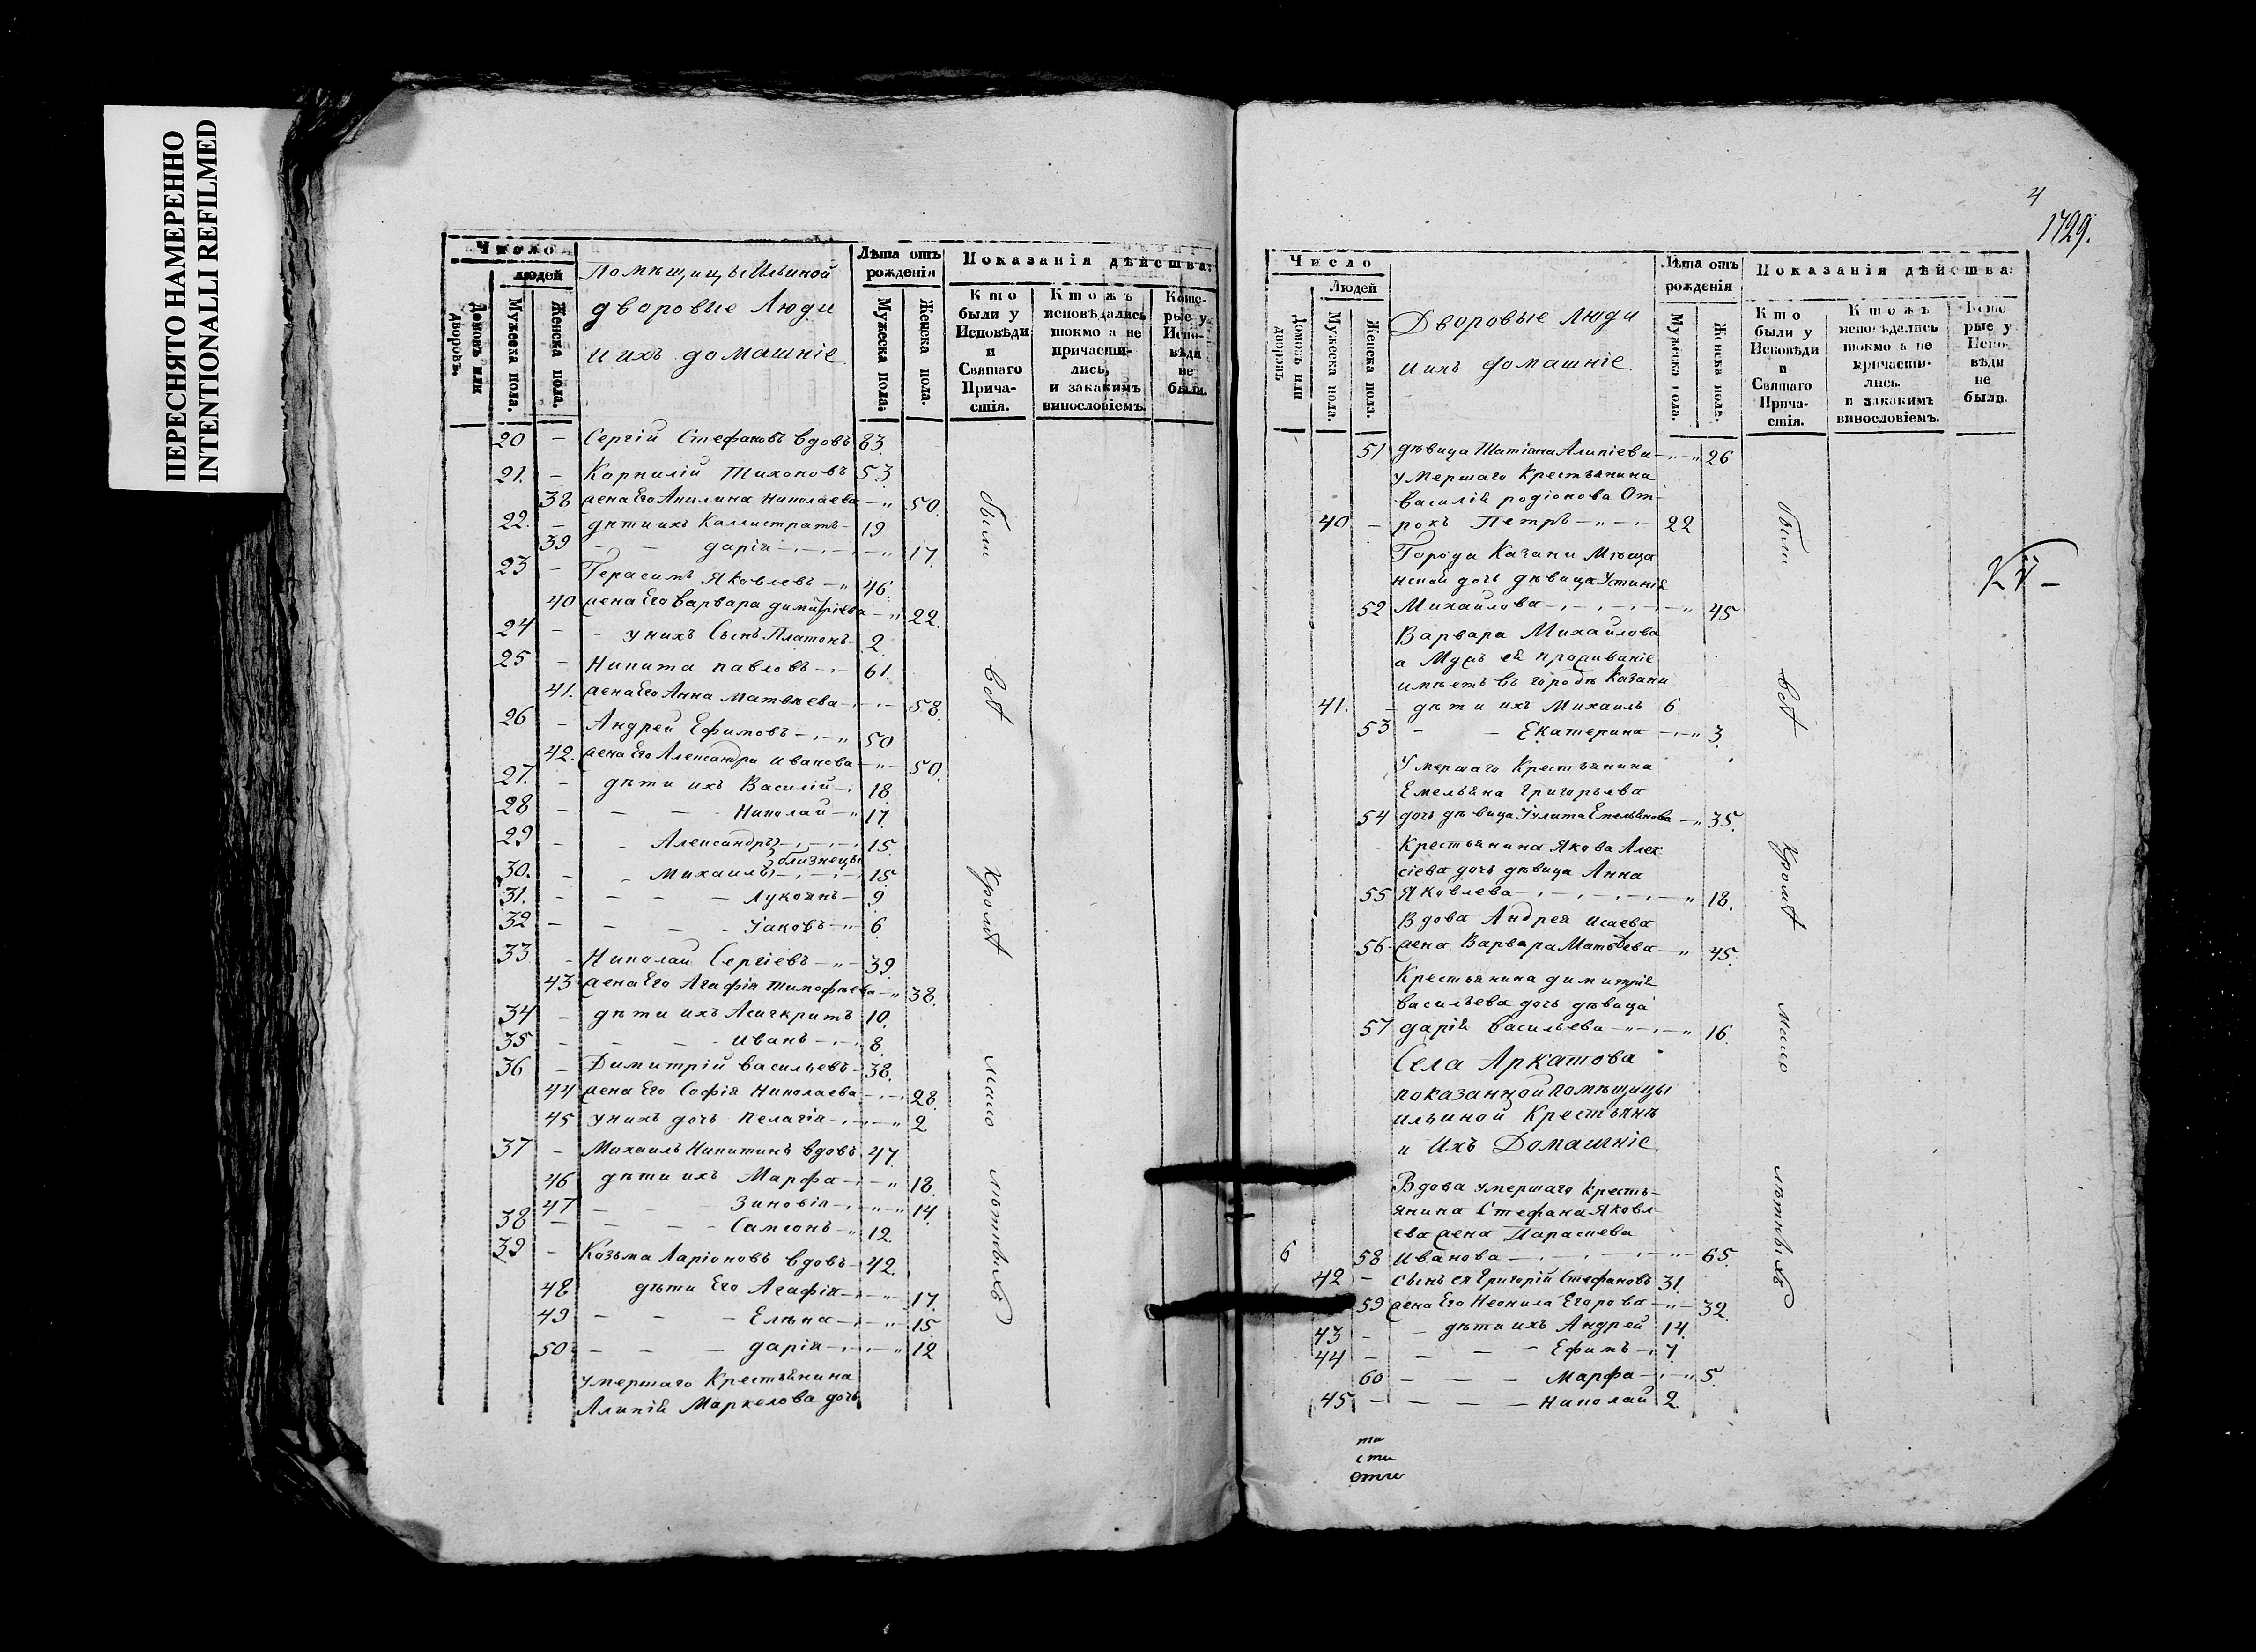 ПЕРЕСНЯТО НАМЕРЕННО
INTENTIONALLI REFILMED
Число
людей
Домовъ или дворовъ.
Мужеска пола.
Женска пола.
Помѣщицы Ильиной
дворовые Люди
и ихъ домашніе.
Лѣта отъ рожденія
Мужеска пола.
Женска пола.
Показанія дѣйства:
Кто были у Исповѣди и Святаго Причастія.
Ктожъ исповѣдались токмо а не причастились, и закакимъ винословіемъ.
Которые у Исповѣди не были.
20 – Сергій Стефановъ вдовъ 83.
21. – Корнилій Тихоновъ 53
38 жена Его Акилина Николаева – „ 50.
22. – дѣти ихъ Каллистратъ – 19
39 – – дарія – „ 17.
23 – Герасимъ Яковлевъ – „ 46.
40 жена Его Варвара димитріева – „ 22.
24 – – у нихъ Сынъ Платонъ – 2.
25 – Никита павловъ – 61.
41. жена Его Анна Матвѣева – 58.
26 – Андрей Ефимовъ – „ 50
42. жена Его Александра иванова – „ – 50.
27. – дѣти ихъ Василій – 18.
28 – – – Николай – „ 17.
29 – – Александръ – 15.
близнецы
30. – – Михаилъ – 15.
31. – – – – Лукоянъ – 9
32 – – – – Іаковъ – „ – 6.
33 – Николай Сергіевъ – „ – 39.
43 жена Его Агафія тимофѣева – „ 38.
34 – дѣти ихъ Асигкритъ 10.
35 – – – иванъ – 8.
36 – Димитрій васильевъ – 38.
44 жена Его Софія Николаева – 28.
45 у нихъ дочь пелагія – „ 2
37 – Михаилъ Никитинъ вдовъ 47.
46 дѣти ихъ Марфа – „ 18.
47 – – – Зиновія – „ 14.
38 – – – – Самсонъ – „ 12.
39 – Козьма Ларіоновъ вдовъ – 42.
48 дѣти Его Агафія – „ – 17.
49 – – – Елена – „ – 15
50 – – – дарія – „ 12
умершаго Крестьянина
Алипія Маркелова дочь
были
всѣ
Кромѣ
мало
лѣтныхъ
4
1729.
Число
Людей
Домовъ или дворовъ
Мужеска пола.
Женска пола.
Дворовые Люди
и ихъ домашніе.
Лѣта отъ рожденія
Мужеска пола.
Женска пола.
Показанія дѣйства:
Кто были у Исповѣди и Святаго Причастія.
Ктожъ исповѣдались токмо а не причастились и закакимъ винословіемъ.
Которые у Исповѣди не были.
51 дѣвица Татіана Алипіева – „ – „ 26
умершаго Крестьянина
василія родіонова От–
40 – рокъ Петръ – „ – – 22
Города Казани Мѣща
нской дочь дѣвица Устинія
52 Михайлова – „ 45
Варвара Михайлова
а Мужъ ей проживаніе
имѣетъ въ городѣ Казани
41. – дѣти ихъ Михаилъ 6.
53 – – Екатерина – „ 3.
Умершаго Крестьянина
Емельяна Григорьева
54 дочь дѣвица Іулита Емельянова – „ 35.
Крестьянина Якова Алек
сіева дочь дѣвица Анна
55 Яковлева – „ 18.
Вдова Андрея исаева
56 жена Варвара Матвѣева – „ 45.
Крестьянина димитрія
васильева дочь дѣвица
57 дарія васильева – „ – „ 16.
Села Аркатова
показанной помѣщицы
ильиной Крестьянъ
и Ихъ Домашніе.
Вдова умершаго кресть–
янина Стефана Яковл
ева жена Параскева
6 58 иванова – „ – 65.
42 – сынъ ея Григорій Стефановъ 31.
59 жена Его Неонила Егорова – „ – 32.
43 – – дѣти ихъ Андрей 14.
44 – – – – Ефимъ – 7.
60 – – – Марфа – „ 5.
45 – – – – Николай 2.
были
всѣ
Кромѣ
мало
лѣтныхъ